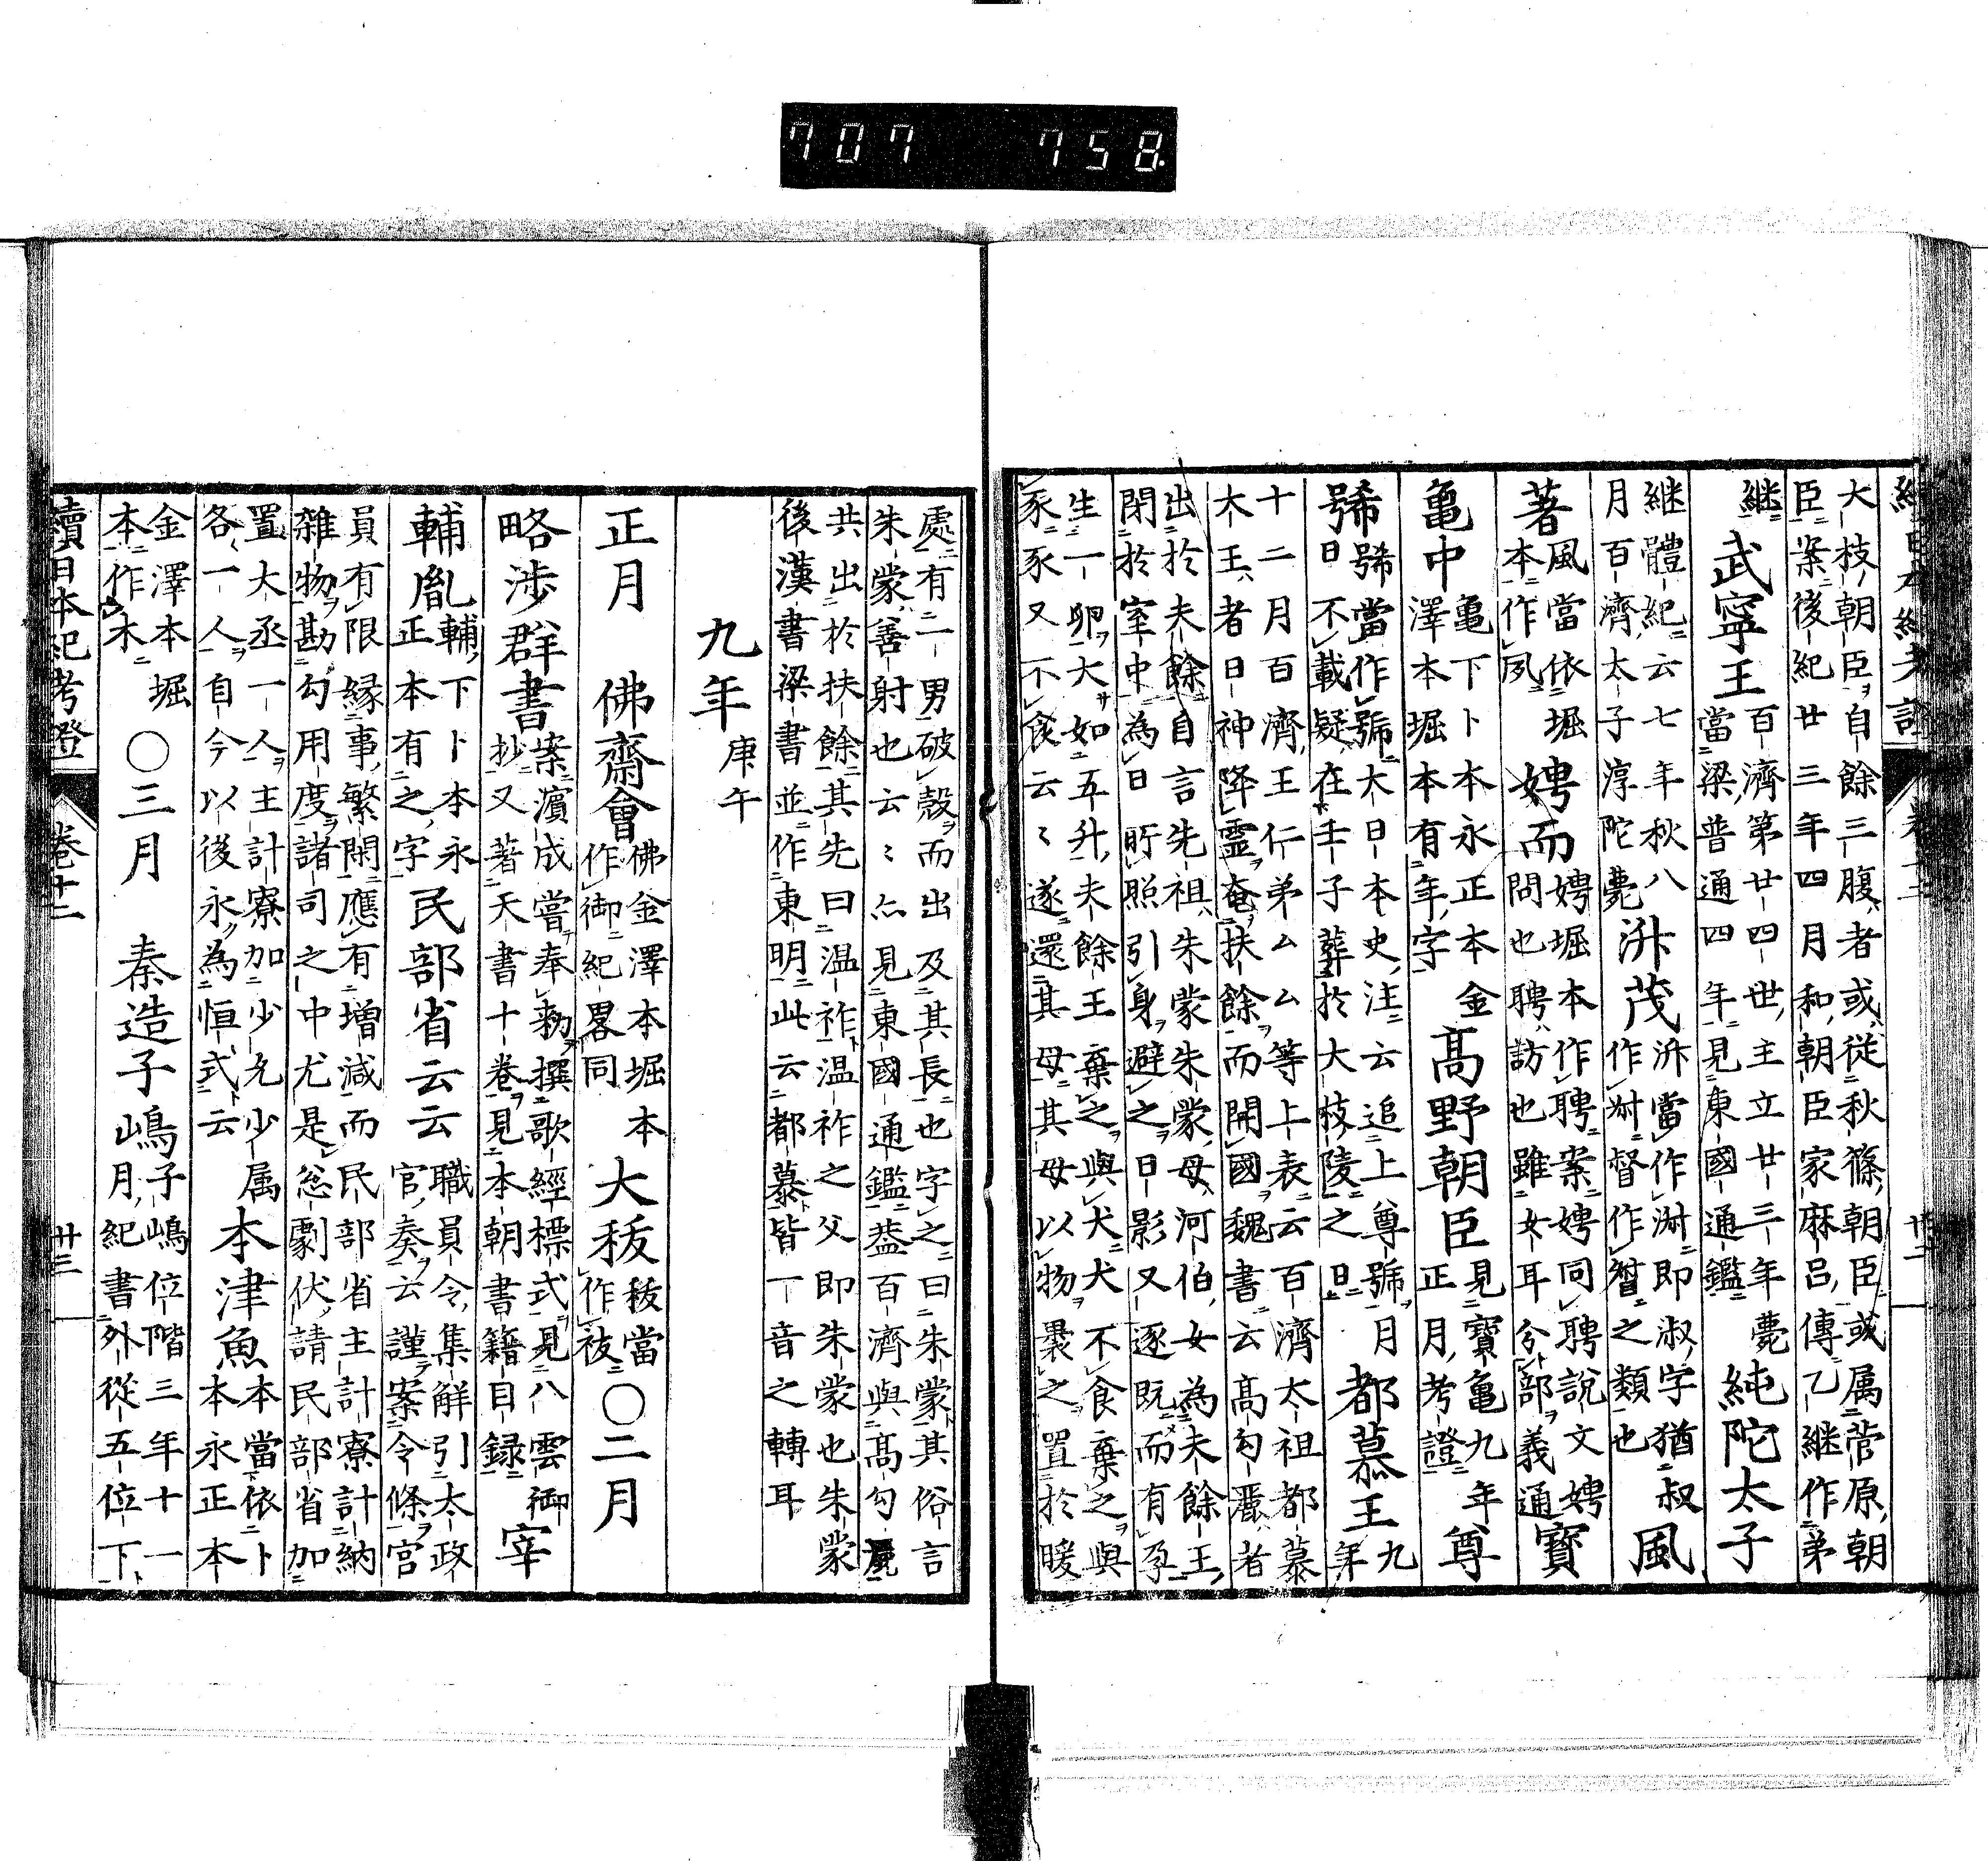 707 758
大枝朝臣自餘三腹者或從秋篠朝臣或属菅原朝
臣案後紀廿三年四月和朝臣家麻呂傳乙継作弟
継
武寧王
百濟第廿四世主立廿三年薨
當梁普通四年見東國通鑑
純陀太子
継體紀云七年秋八
月百濟太子淳陀薨
茂
當作即淑字猶叔
作督作之類也
風
著
風當依堀
本作夙
娉而
娉堀本作聘案娉同聘說文娉
問也聘訪也雖女耳兮部義通
寶
亀中
亀下卜本永正本金
澤本堀本有年字
高野朝臣
見寶亀九年
正月考證
尊
號當作號大日本史注云追上尊號月
日不載疑在壬子葬於大枝陵之日
都慕王
九
年
十二月百濟王仁弟厶厶等上表云百濟太祖都慕
大王者日神降靈奄扶餘而開國魏書云高句麗者
出於夫餘自言先祖朱蒙朱蒙母河伯女為夫餘王
閉於室中為日所照引身避之日影又逐既而有孕
生一卵大如五升夫餘王棄之與犬犬不食棄之與
豕豕又不食云〻遂還其母其母以物裹之置於暖
處有一男破殼而出及其長也字之曰朱蒙其俗言
朱蒙善射也云〻亦見東國通鑑葢百濟與高句麗
共出於扶餘其先曰温祚温祚之父即朱蒙也朱蒙
後漢書梁書並作東明此云都慕皆一音之轉耳
九年
庚午
正月
佛齋會
佛金澤本堀本
作御紀畧同
大秡
秡當
作祓
○二月
略渉群書
案濵成嘗奉勅撰歌經標式見八雲御
抄又著天書十卷見本朝書籍目録
宰
輔胤
輔下卜本永
正本有之字
民部省云云
職員令集解引太政
官奏云謹案令條官
員有限縁事繁閑應有増減而民部省主計寮計納
雜物勘勾用度諸司之中尤是怱劇伏請民部省加
置大丞一人主計寮加少允少属
各一人自今以後永為恒式云
本津魚
本當依卜
本永正本
金澤本堀
本作木
○三月
秦造子嶋
子嶋位階三年十一
月紀書外從五位下
續日本紀考證
卷十二
廿三